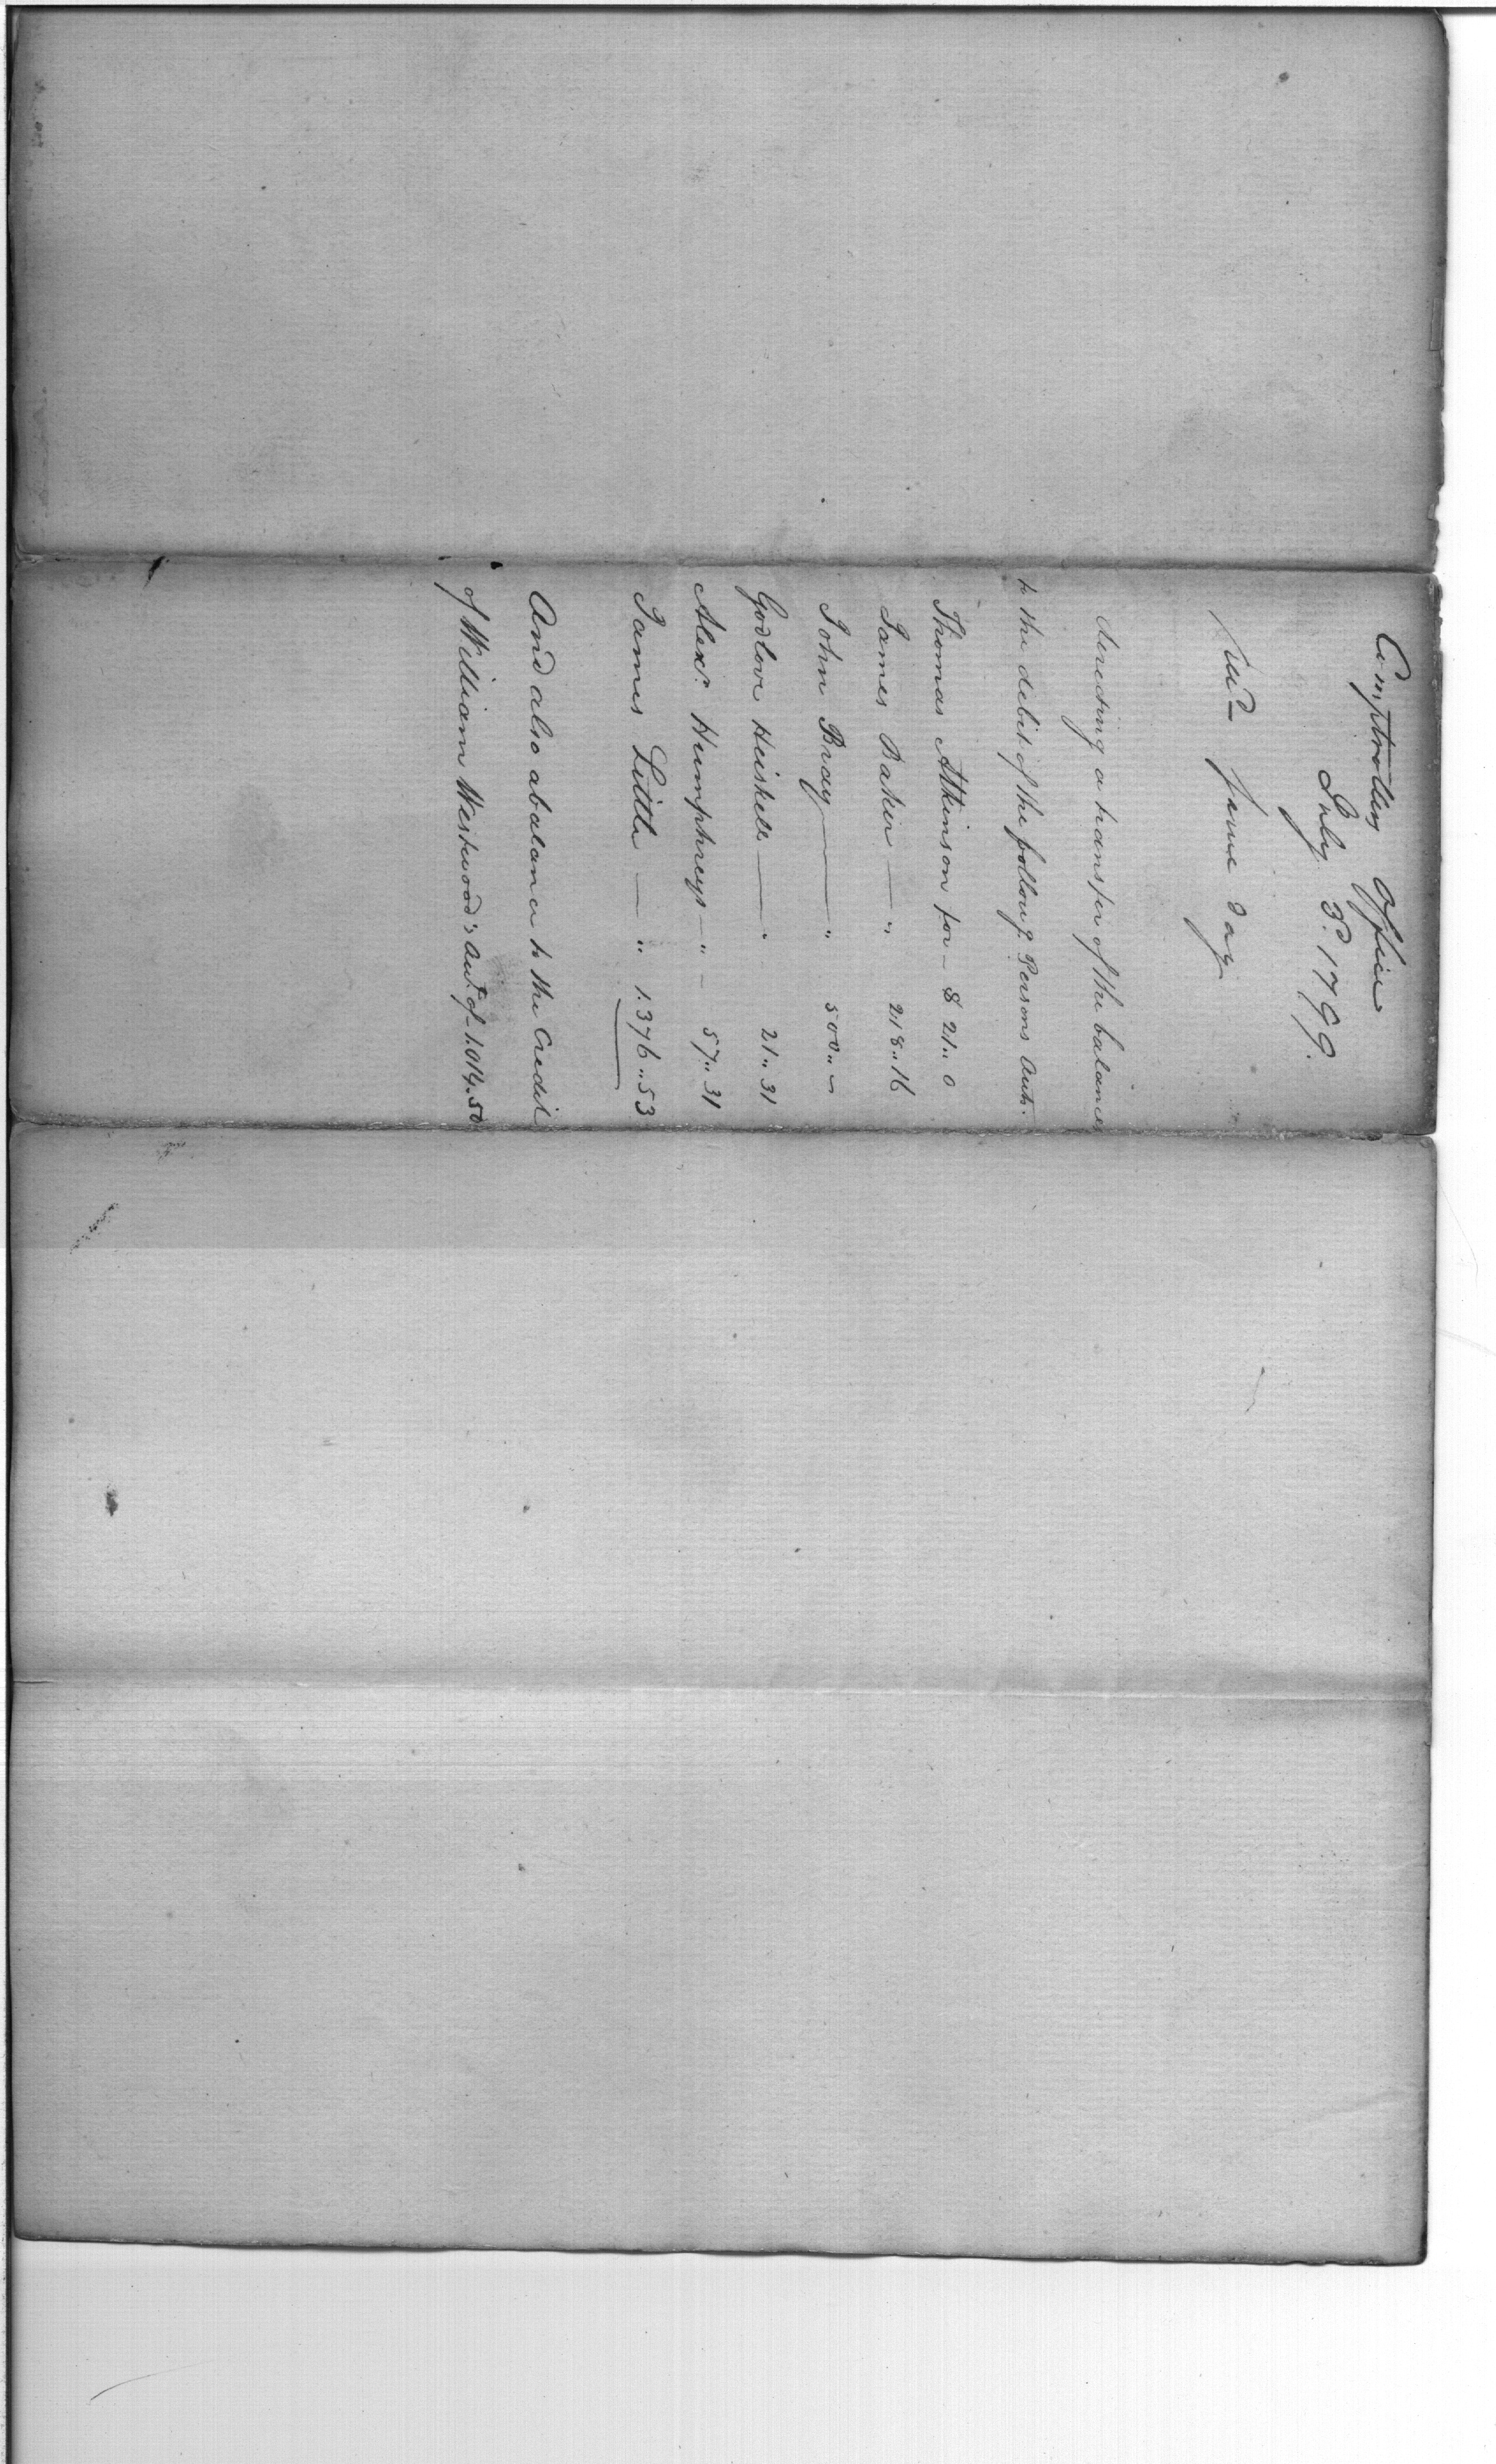 Comptrollers Office
July 3d. 1799.
Recd. same day
directing a transfer of the balances
to the debit of the followg. Persons Accts.
Thomas Atkinson for — $ 21.. 0
James Baker — " 218..16
John Bray — " 500..–
Godlove Heiskell — " 21..31
Alexr. Humphreys — " — 57..31
James Little — " 1.376..53
And also a balance to the Credit
of William Westwood's Acct. of 1.014..50